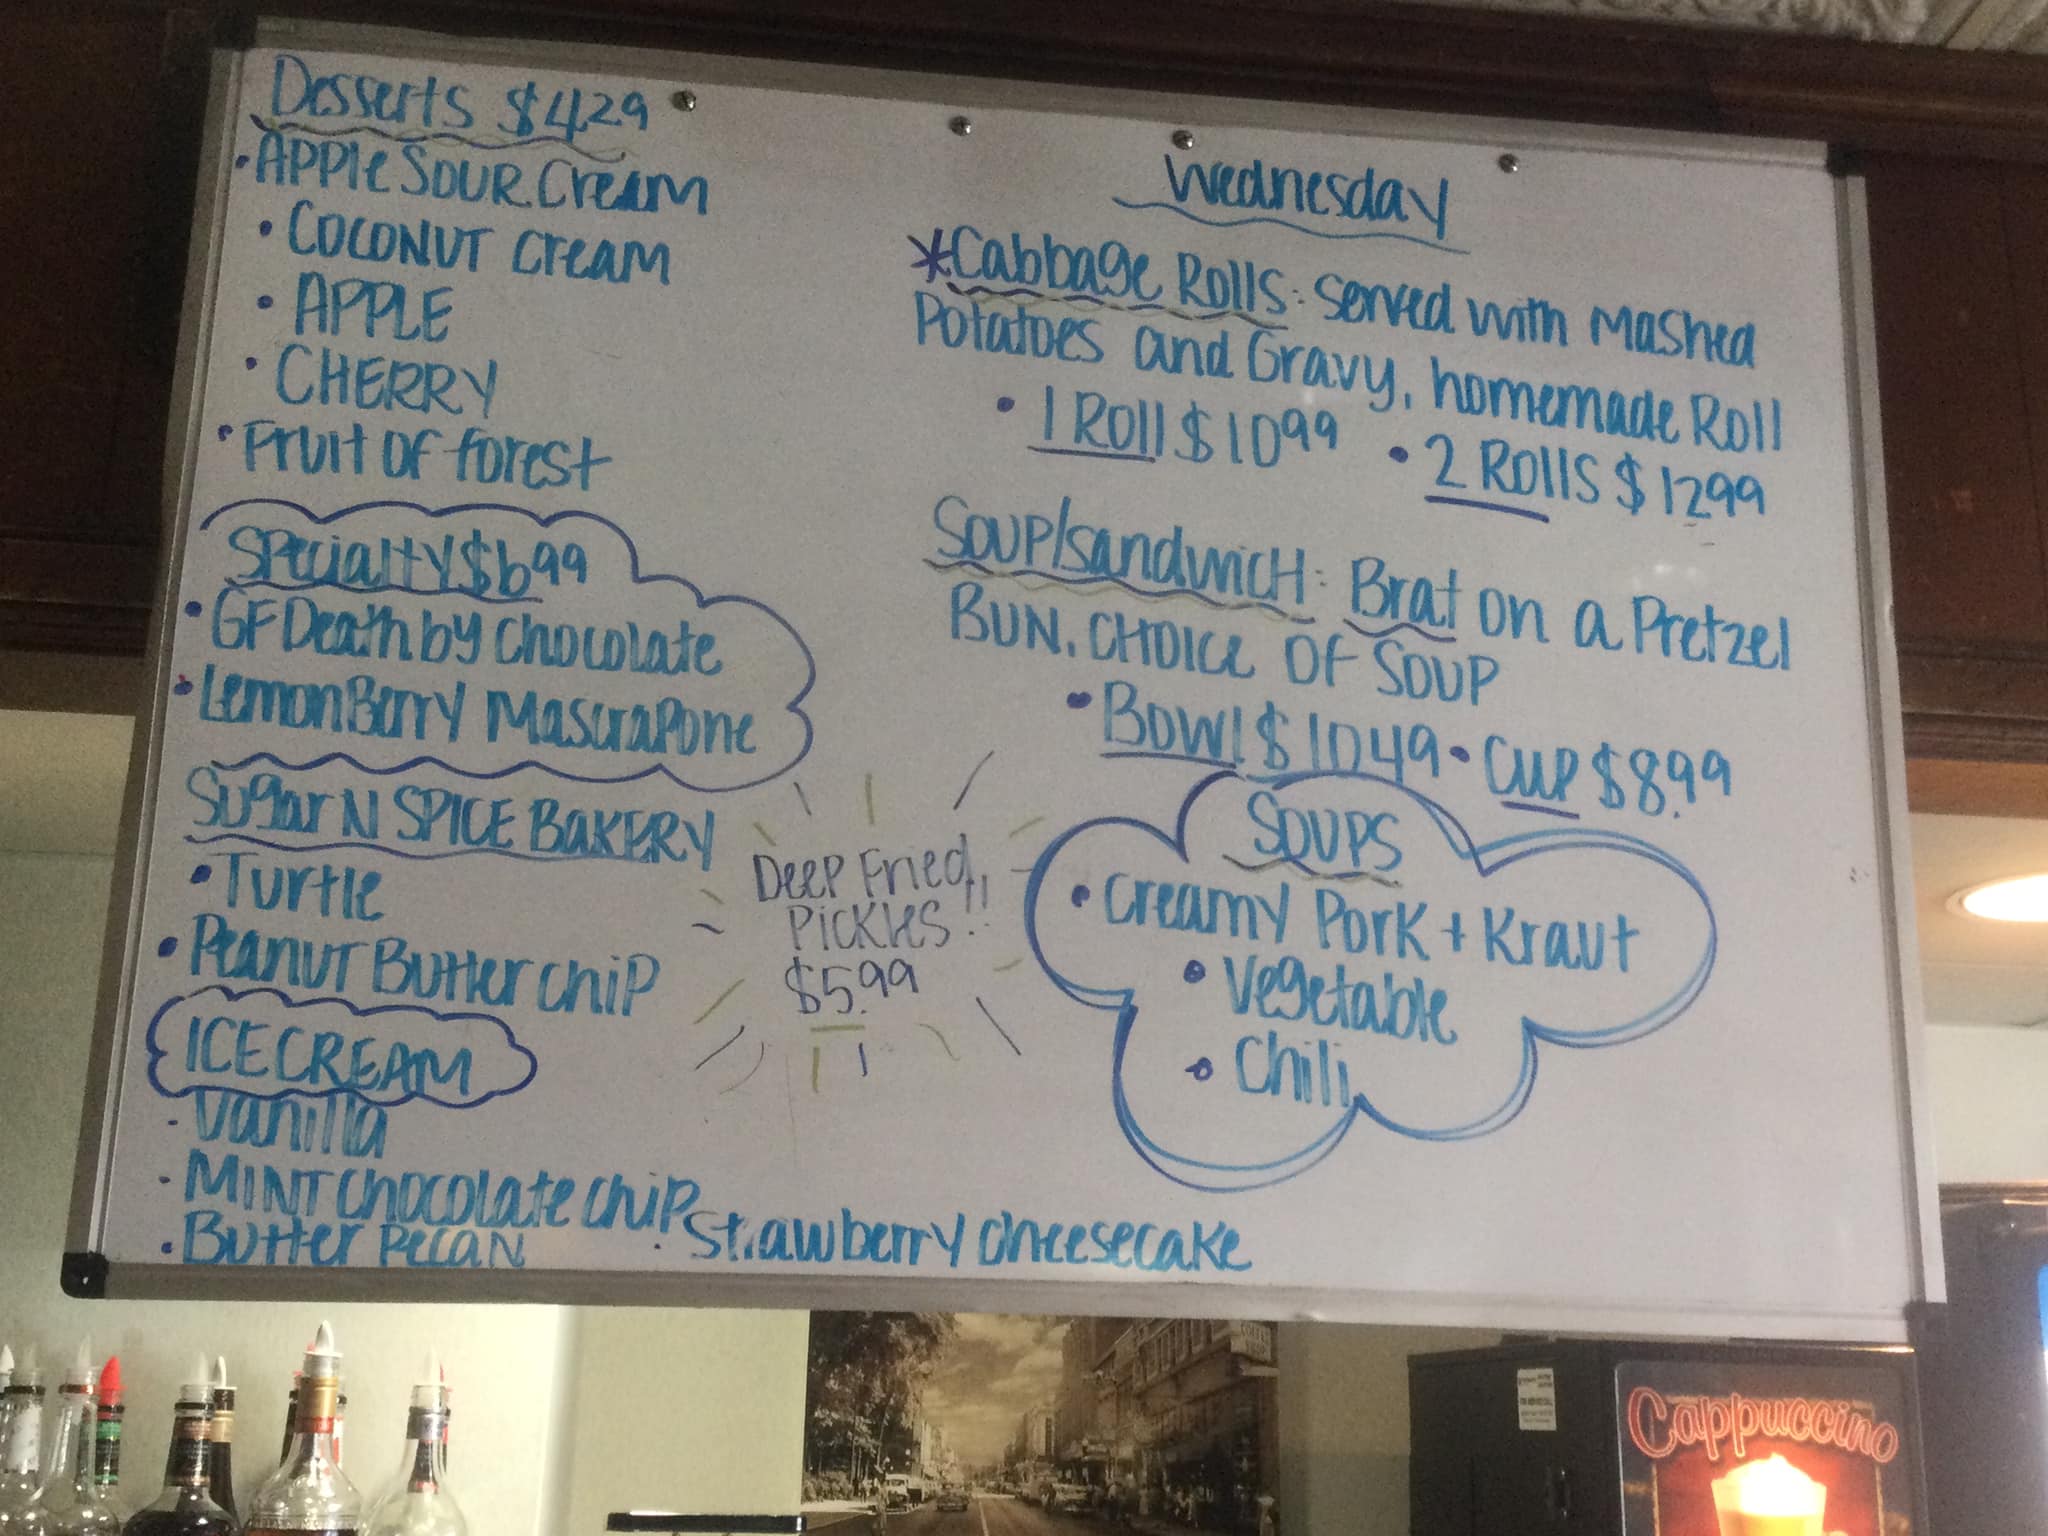 Desserts $4.29
• Apple Sour Cream
• Coconut Cream
• APPLE
• CHERRY
• Fruit of forest
Specialty $6.99
• GF Death by Chocolate
• Lemon Berry Mascrapone
Sugar N SPICE BAKERY
• Turtle
• Peanut Butter chip
ICE CREAM
• Vanilla
• MINT chocolate chip
• Butter Pecan
• Strawberry cheesecake
Deep Fried
Pickles!!
$5.99
Wednesday
*Cabbage Rolls: served with Mashed
Potatoes and Gravy, homemade Roll
• 1 Roll $10.99 • 2 Rolls $12.99
Soup/sandwich: Brat on a Pretzel
BUN. CHOICE OF SOUP
• Bowl $10.49 • Cup $8.99
SOUPS
• Creamy Pork + Kraut
• Vegetable
• Chili
Cappuccino